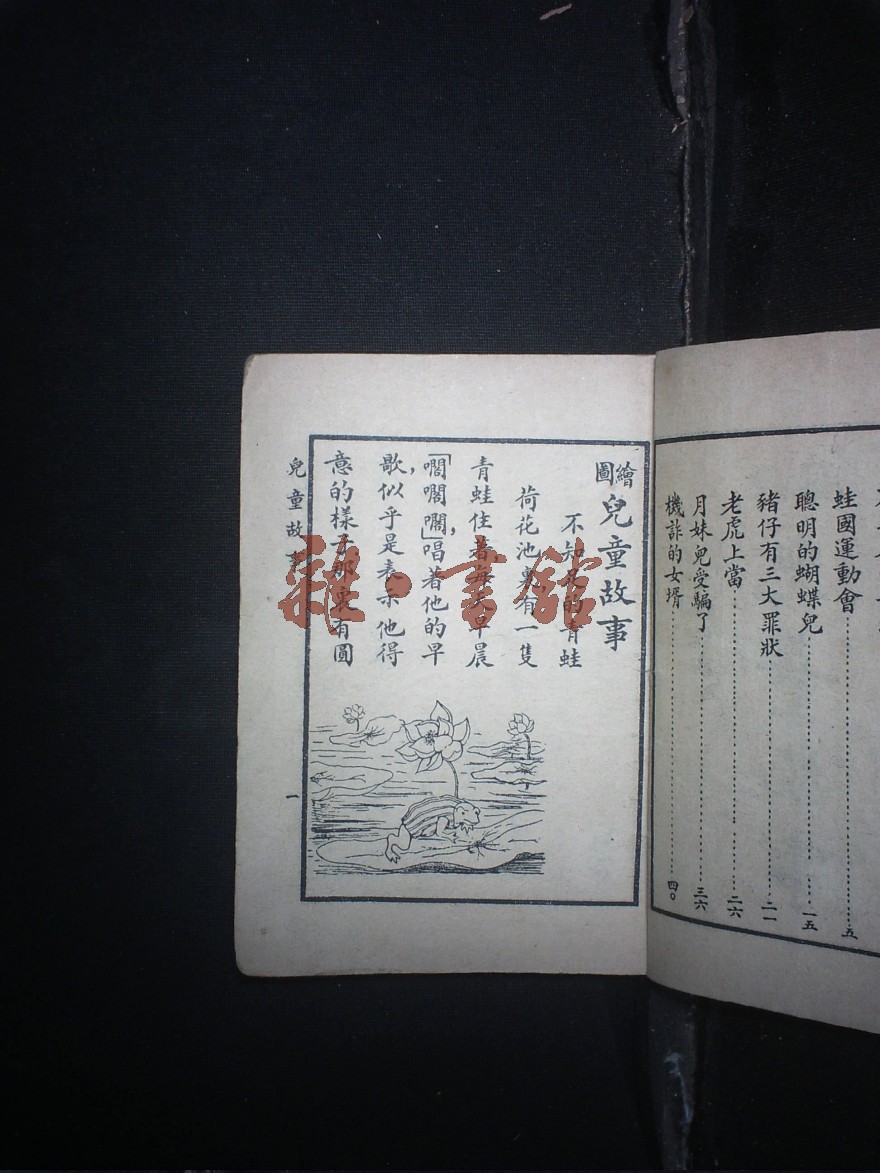 蛙國運動會……五
聰明的蝴蝶兒……一五
豬仔有三大罪狀……二一
老虎上當……二六
月妹兒受騙了……三六
機詐的女壻……四〇
繪圖兒童故事
不知足的青蛙
荷花池裏有一隻
青蛙住着每天早晨
「」唱着他的早
歌,似乎是表示他得
意的樣子那裏有圓
兒童故事
一
雜·書館